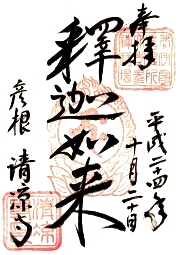 奉拝
平成二十四年
十月二十日
釋迦如来
彦根 清凉寺